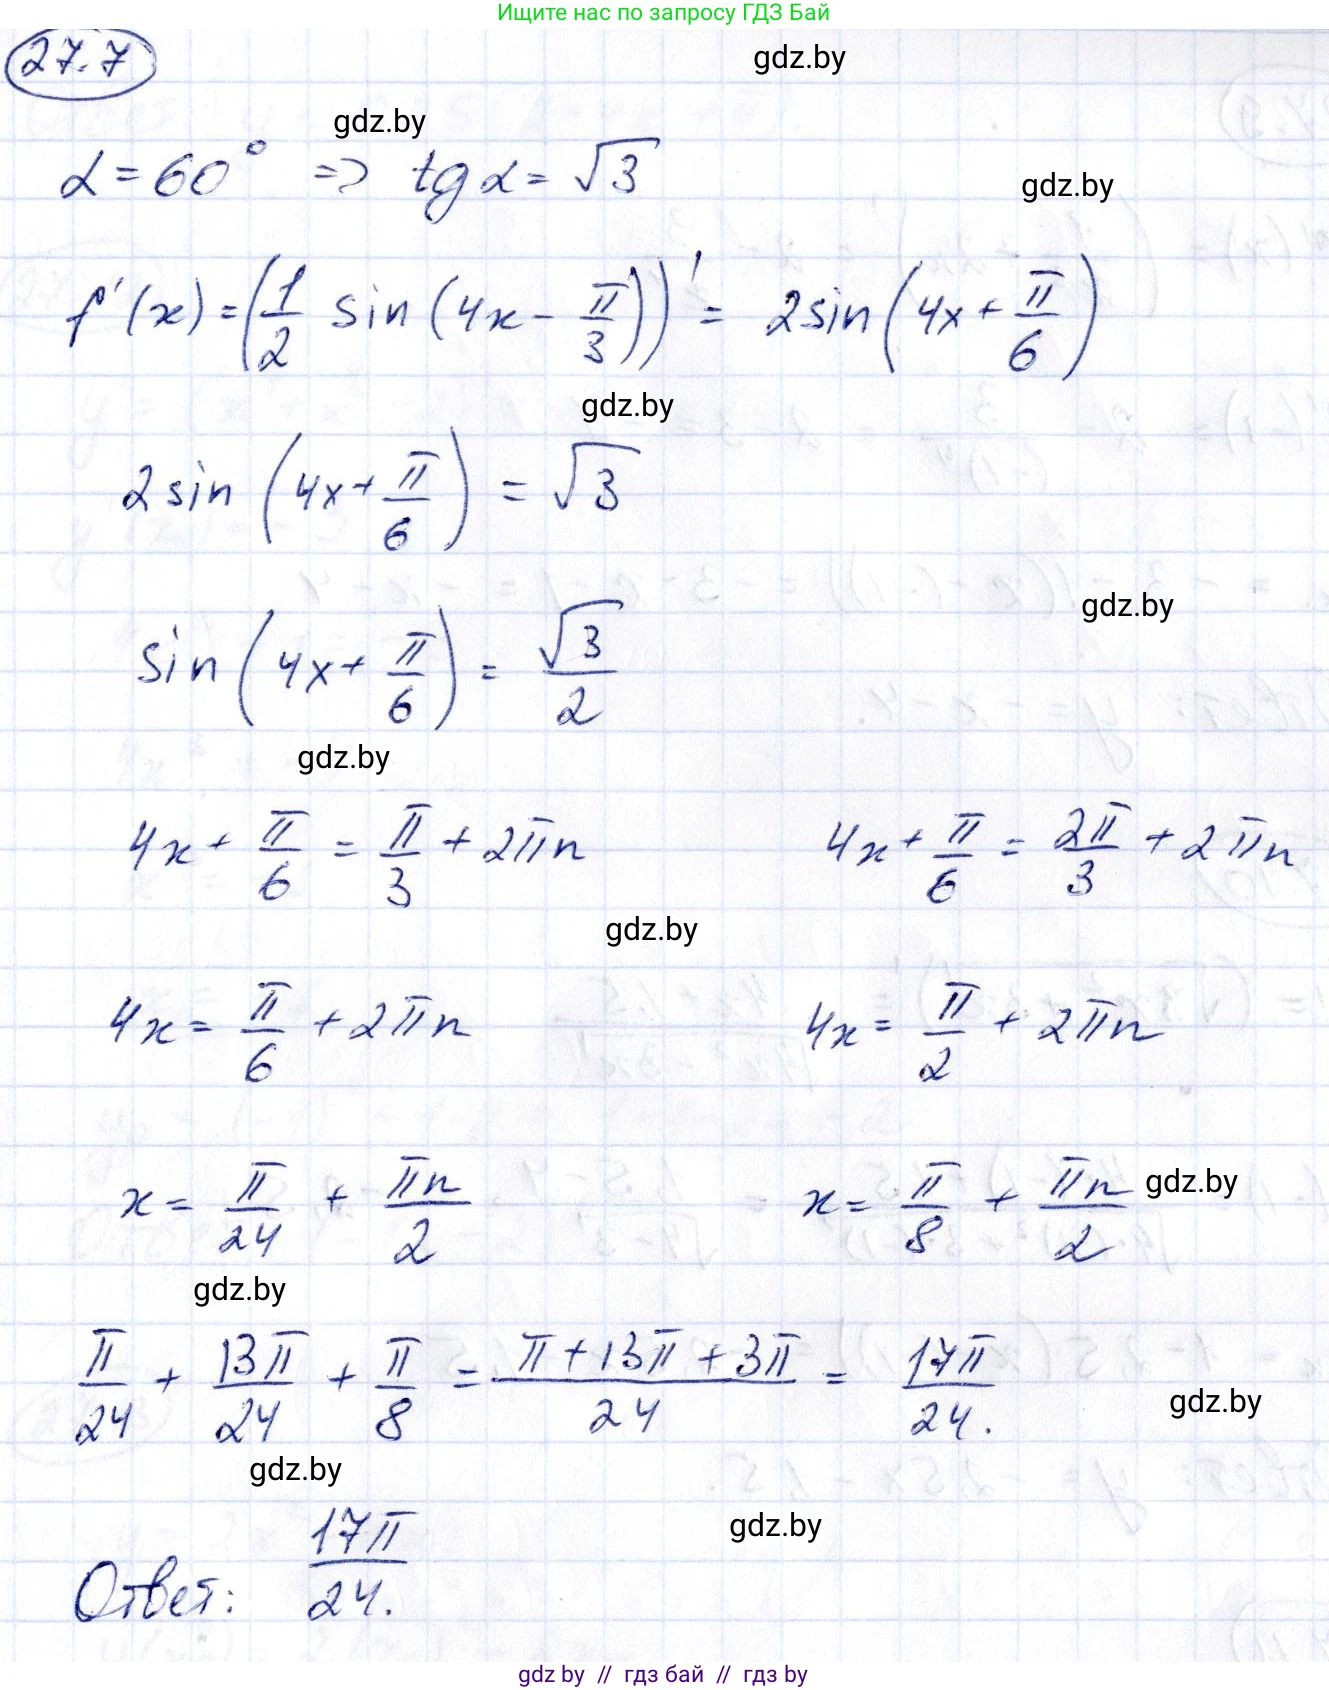 Ищите нас по запросу ГДЗ Бай
27.7
gdz.by
gdz.by
α = 60° => tg α = √3
gdz.by
f'(x) = (1/2 sin(4x - π/3))' = 2sin(4x + π/6)
gdz.by
2sin(4x + π/6) = √3
gdz.by
sin(4x + π/6) = √3/2
gdz.by
4x + π/6 = π/3 + 2πn 4x + π/6 = 2π/3 + 2πn
gdz.by
4x = π/6 + 2πn 4x = π/2 + 2πn
x = π/24 + πn/2 x = π/8 + πn/2 gdz.by
gdz.by
π/24 + 13π/24 + π/8 = (π + 13π + 3π)/24 = 17π/24.
gdz.by
gdz.by
gdz.by
Ответ: 17π/24.
gdz by // гдз бай // гдз by